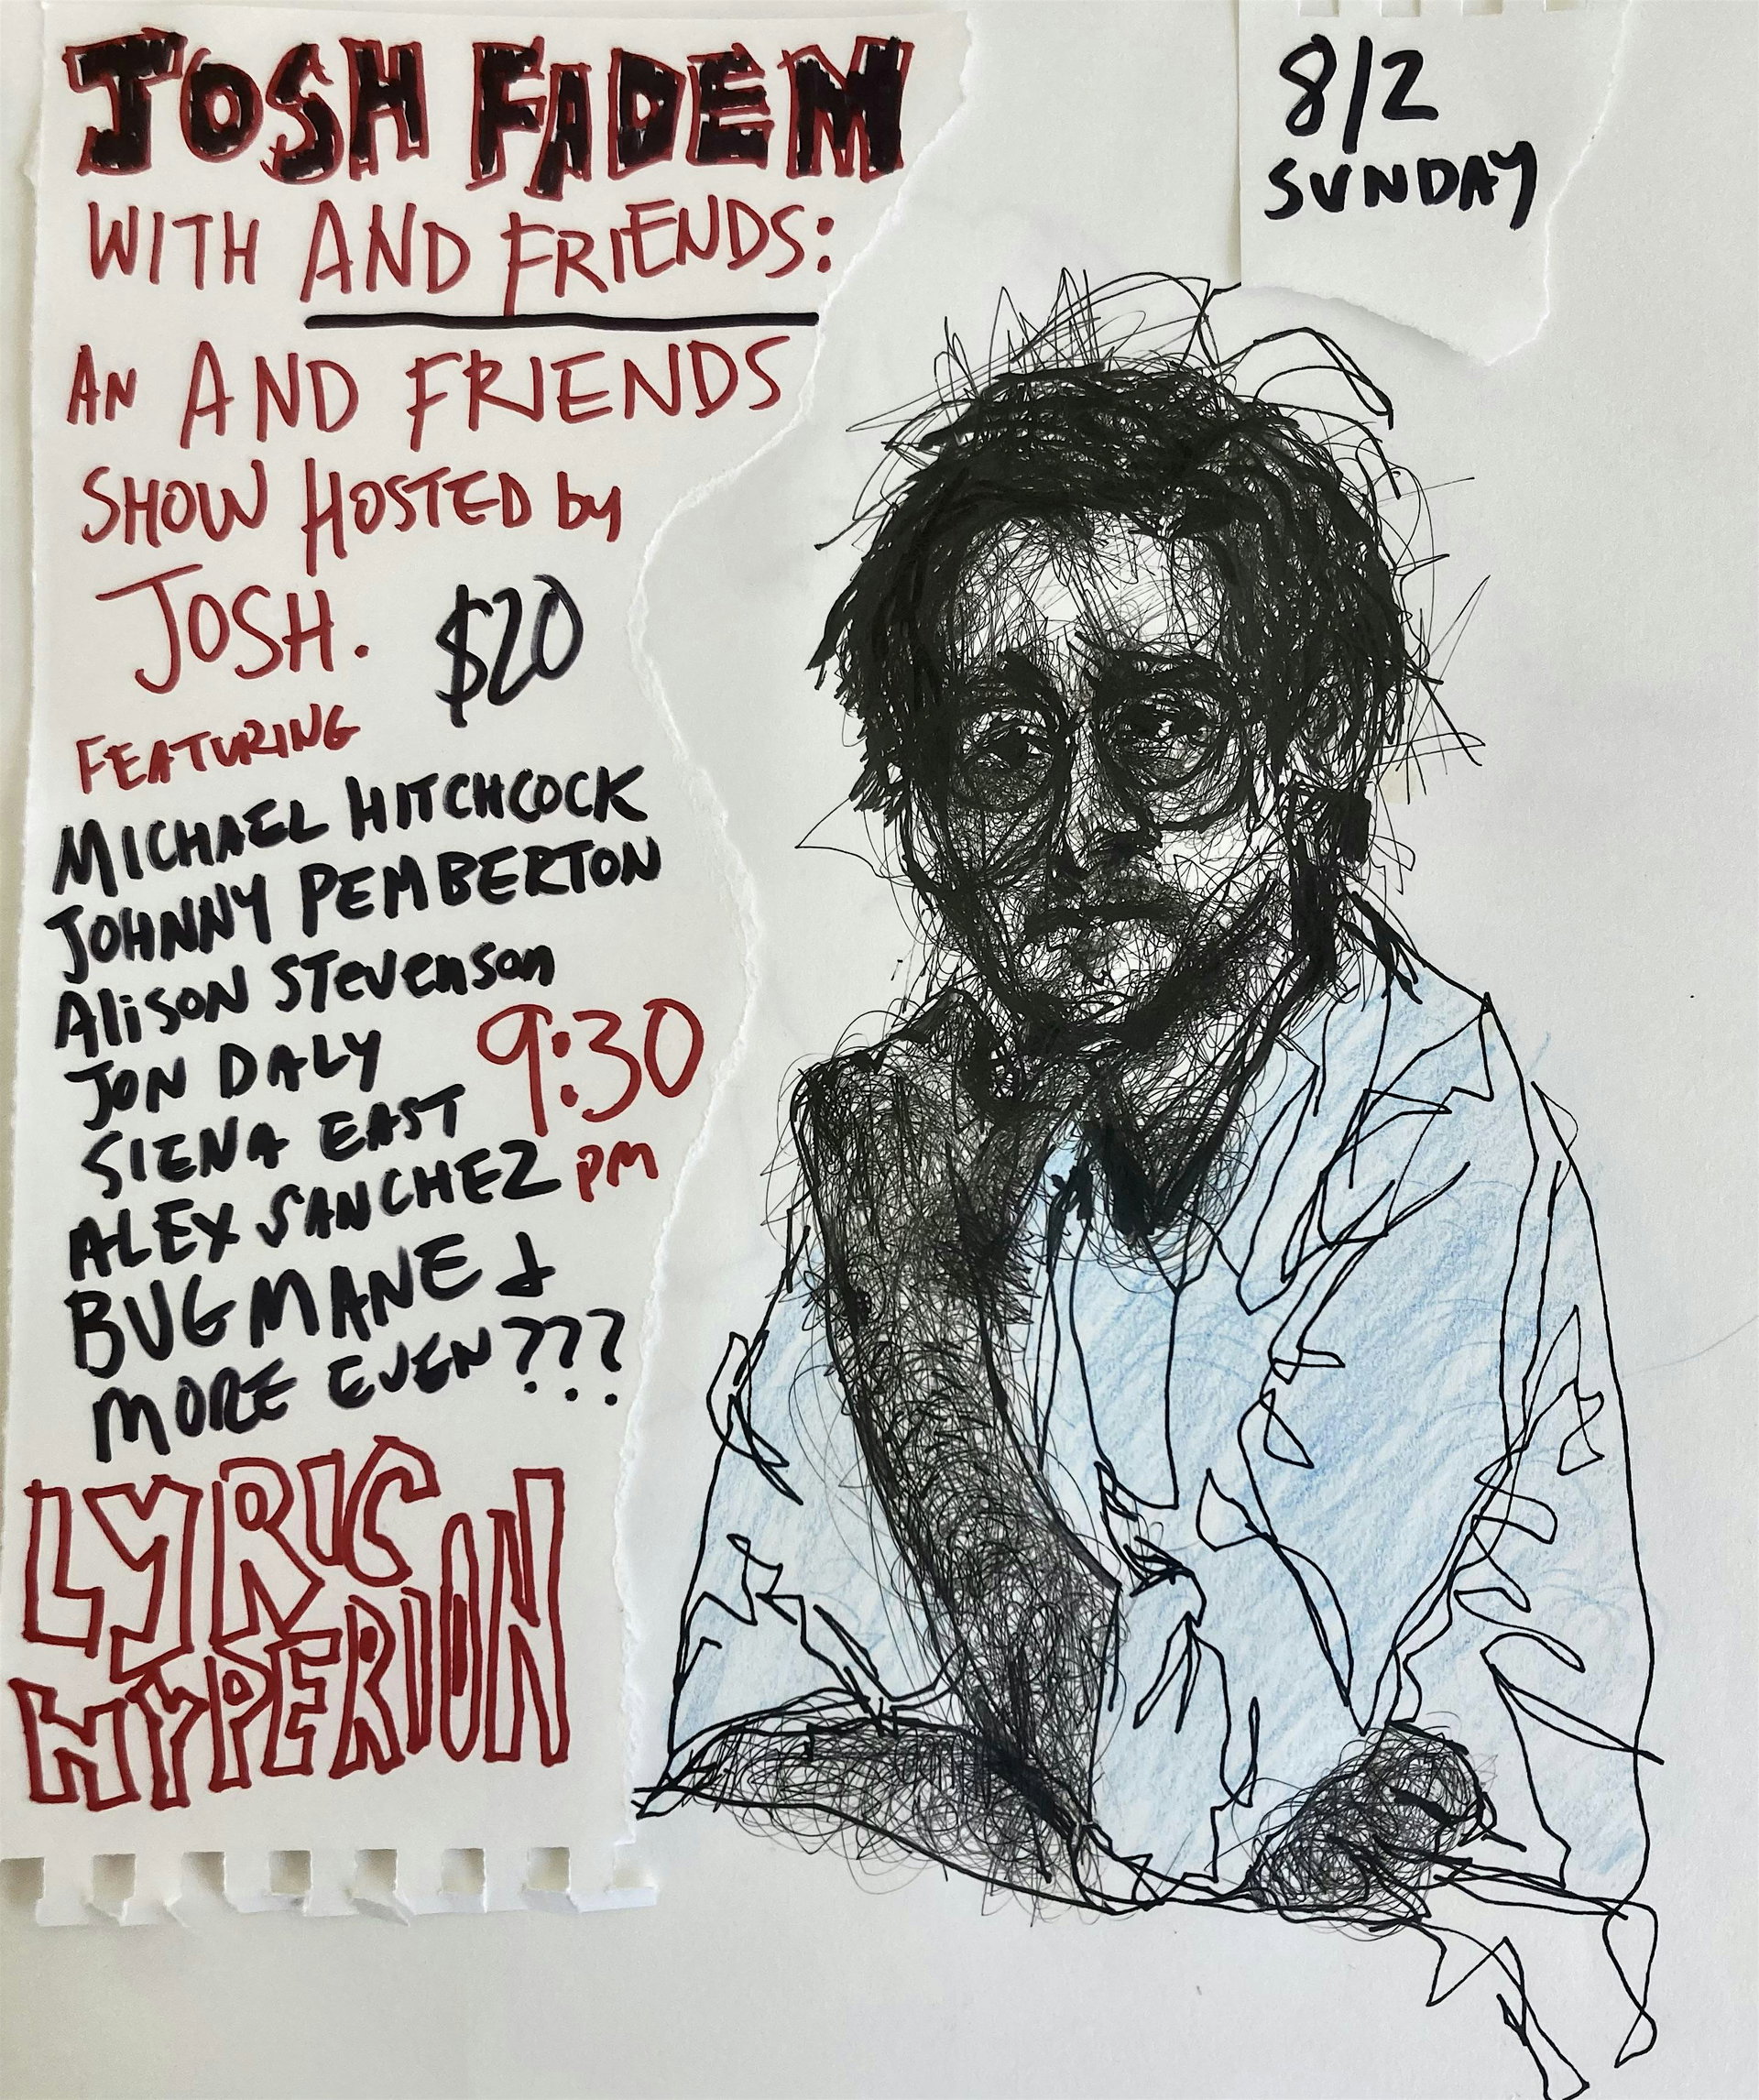 JOSH FADEM
WITH AND FRIENDS:
AN AND FRIENDS
SHOW HOSTED by
JOSH.
$20
FEATURING
MICHAEL HITCHCOCK
JOHNNY PEMBERTON
Alison Stevenson
JON DALY
SIENA EAST
ALEX SANCHEZ
BUGMANE &
MORE EVEN???
9:30
PM
LYRIC
HYPERION
8/2
SUNDAY